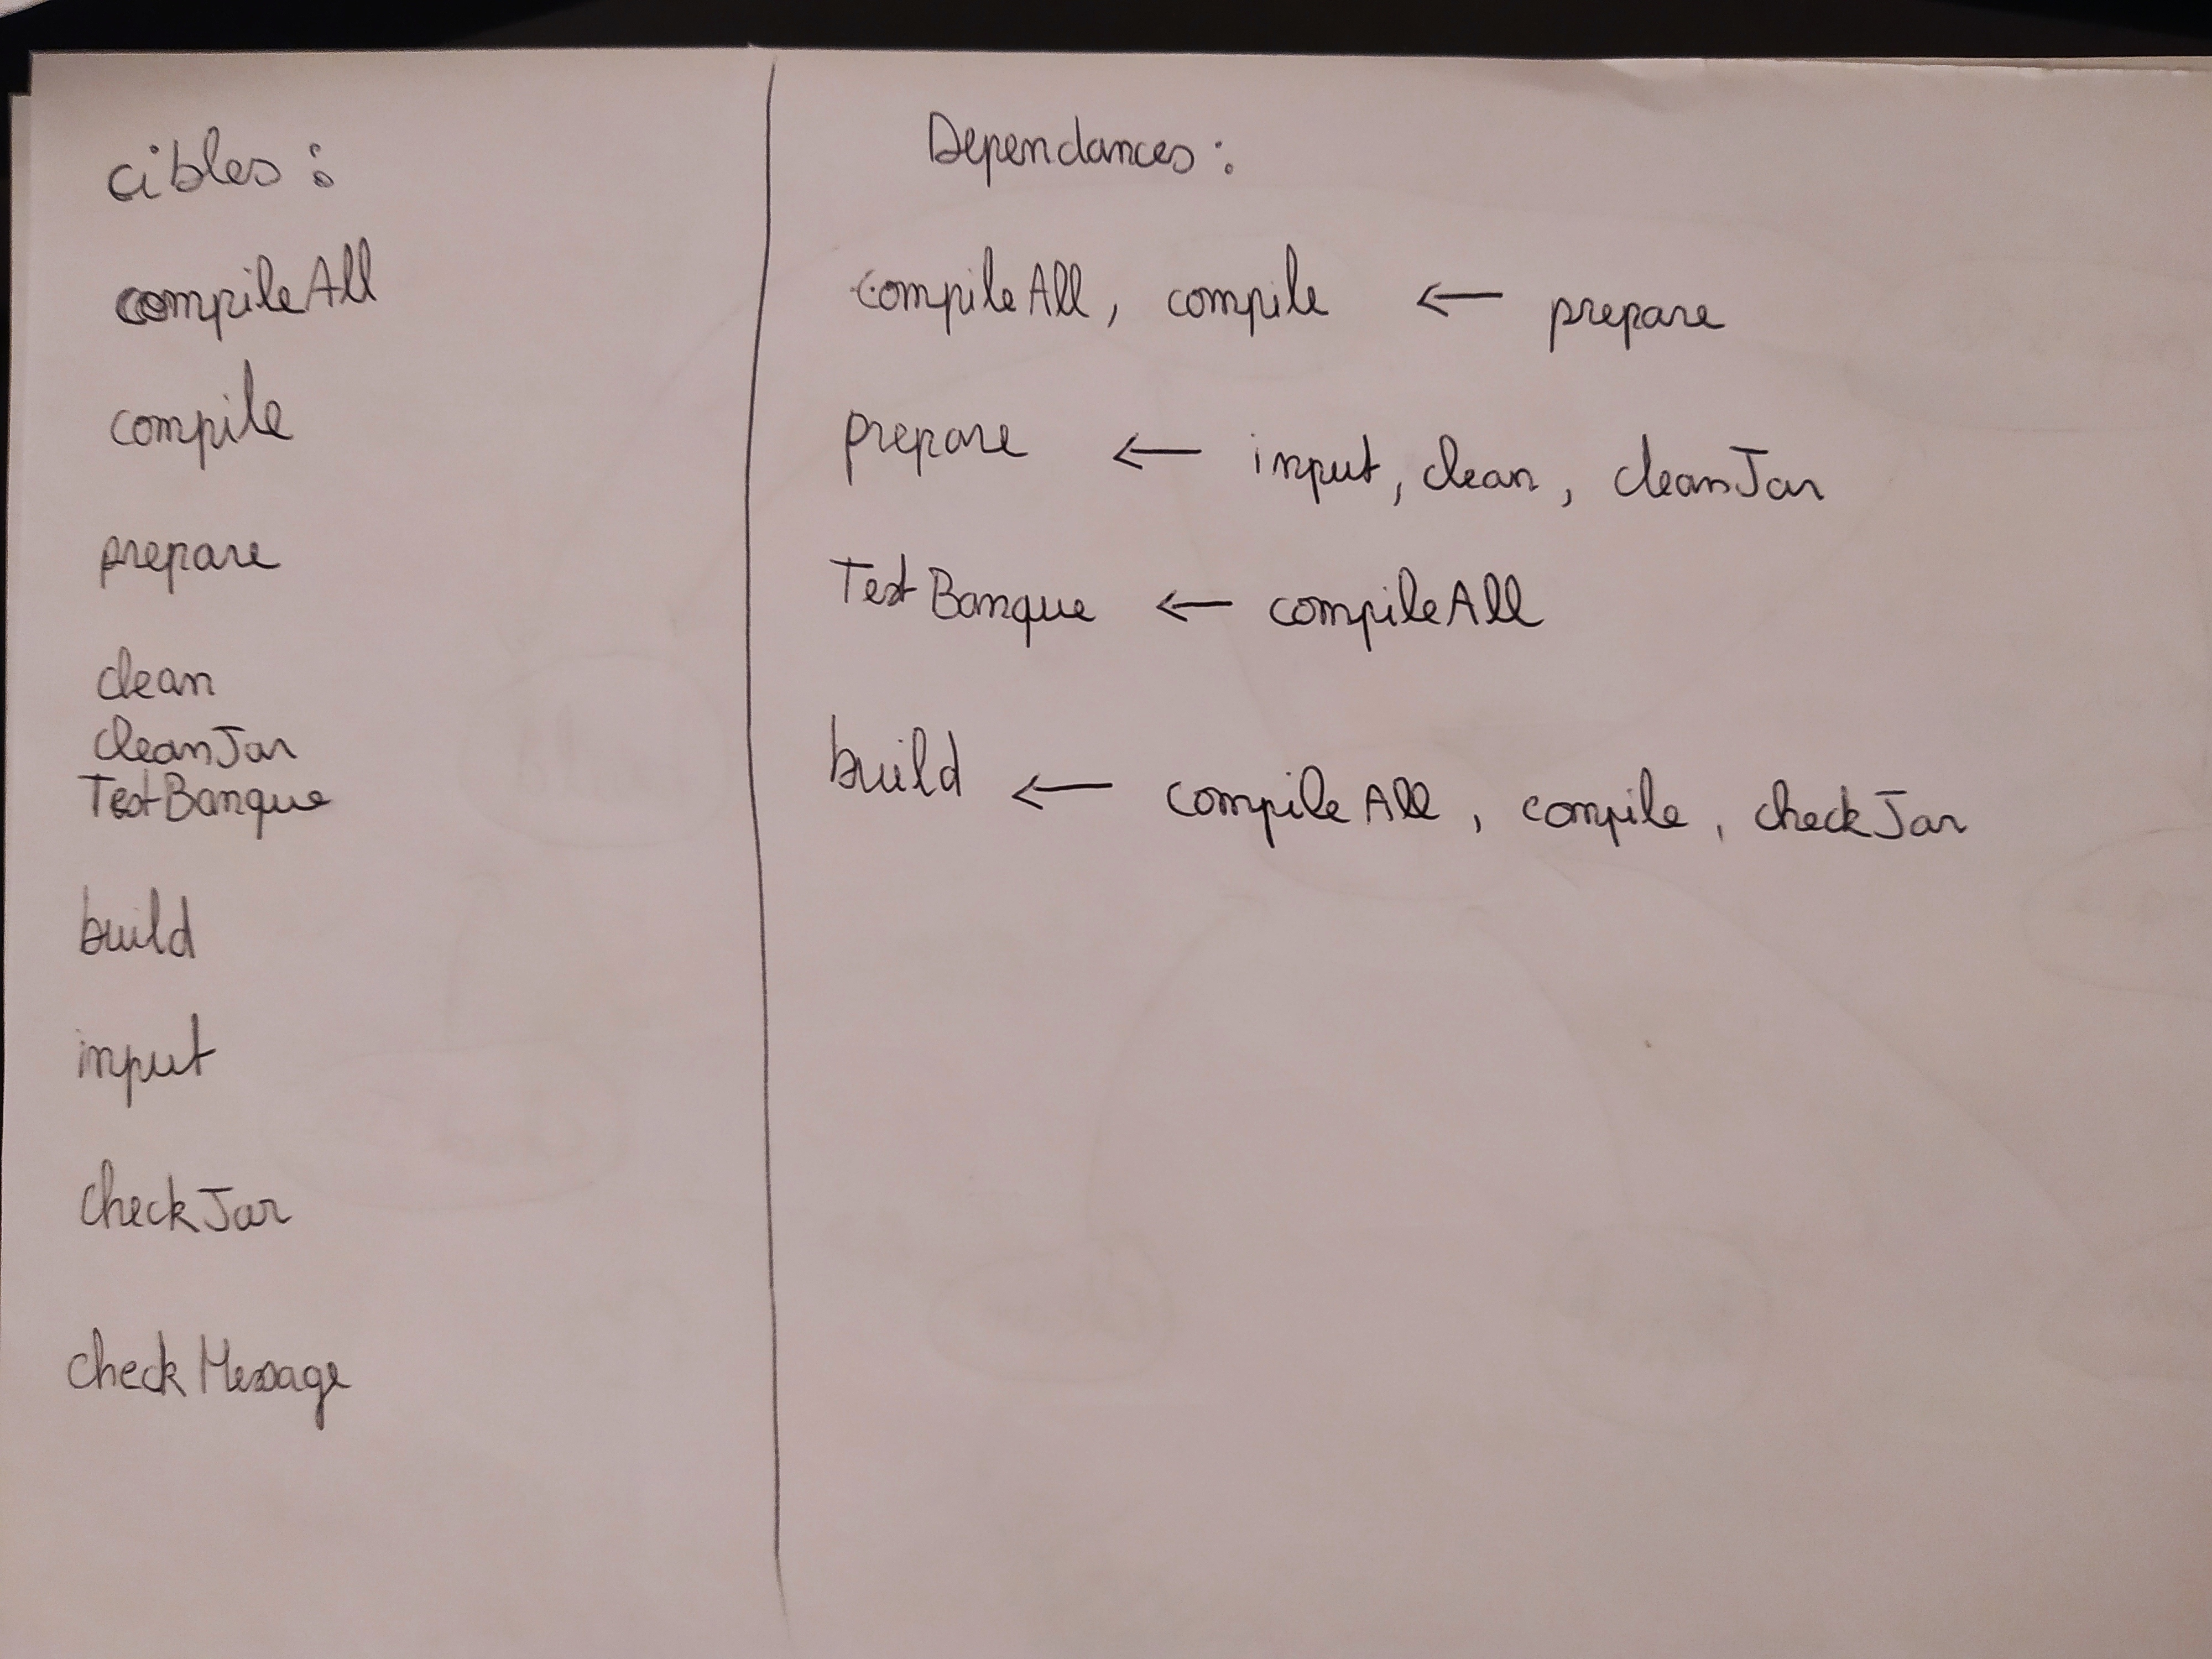 cibles :
compileAll
compile
prepare
clean
cleanJar
TestBanque
build
input
checkJar
checkMessage
Dependances :
compileAll, compile ← prepare
prepare ← input, clean, cleanJar
TestBanque ← compileAll
build ← compileAll, compile, checkJar